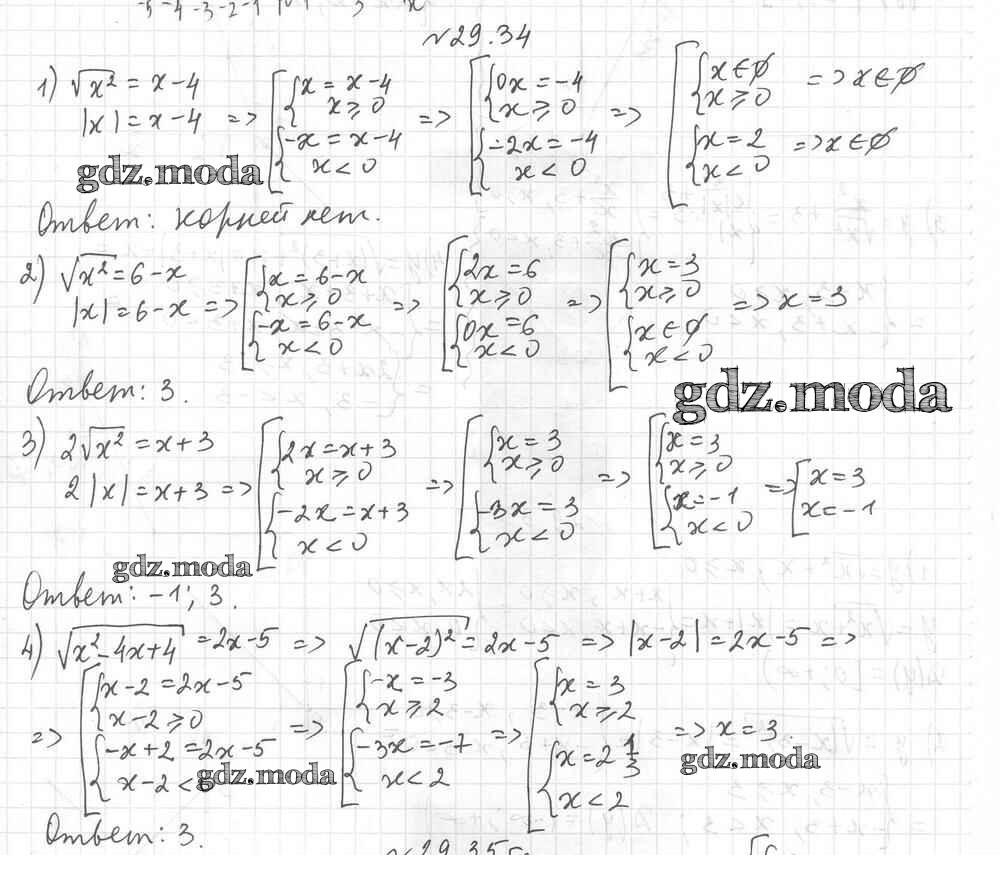 -5 -4 -3 -2 -1
x
№29.34
1) √x² = x-4
|x| = x-4 => [ { x = x-4 x ≥ 0 { -x = x-4 x < 0 => [ { 0x = -4 x ≥ 0 { -2x = -4 x < 0 => [ { x ∈ ∅ x ≥ 0 => x ∈ ∅ { x = 2 x < 0 => x ∈ ∅
gdz.moda
Ответ: корней нет.
2) √x² = 6-x
|x| = 6-x => [ { x = 6-x x ≥ 0 { -x = 6-x x < 0 => [ { 2x = 6 x ≥ 0 { 0x = 6 x < 0 => [ { x = 3 x ≥ 0 { x ∈ ∅ x < 0 => x = 3
Ответ: 3.
gdz.moda
3) 2√x² = x+3
2|x| = x+3 => [ { 2x = x+3 x ≥ 0 { -2x = x+3 x < 0 => [ { x = 3 x ≥ 0 { -3x = 3 x < 0 => [ { x = 3 x ≥ 0 { x = -1 x < 0 => [ x = 3 x = -1
gdz.moda
Ответ: -1; 3.
4) √x²-4x+4 = 2x-5 => √(x-2)² = 2x-5 => |x-2| = 2x-5 =>
=> [ { x-2 = 2x-5 x-2 ≥ 0 { -x+2 = 2x-5 x-2 < => [ { -x = -3 x ≥ 2 { -3x = -7 x < 2 => [ { x = 3 x ≥ 2 { x = 2 1/3 x < 2 => x = 3
gdz.moda
gdz.moda
Ответ: 3.
№29.35